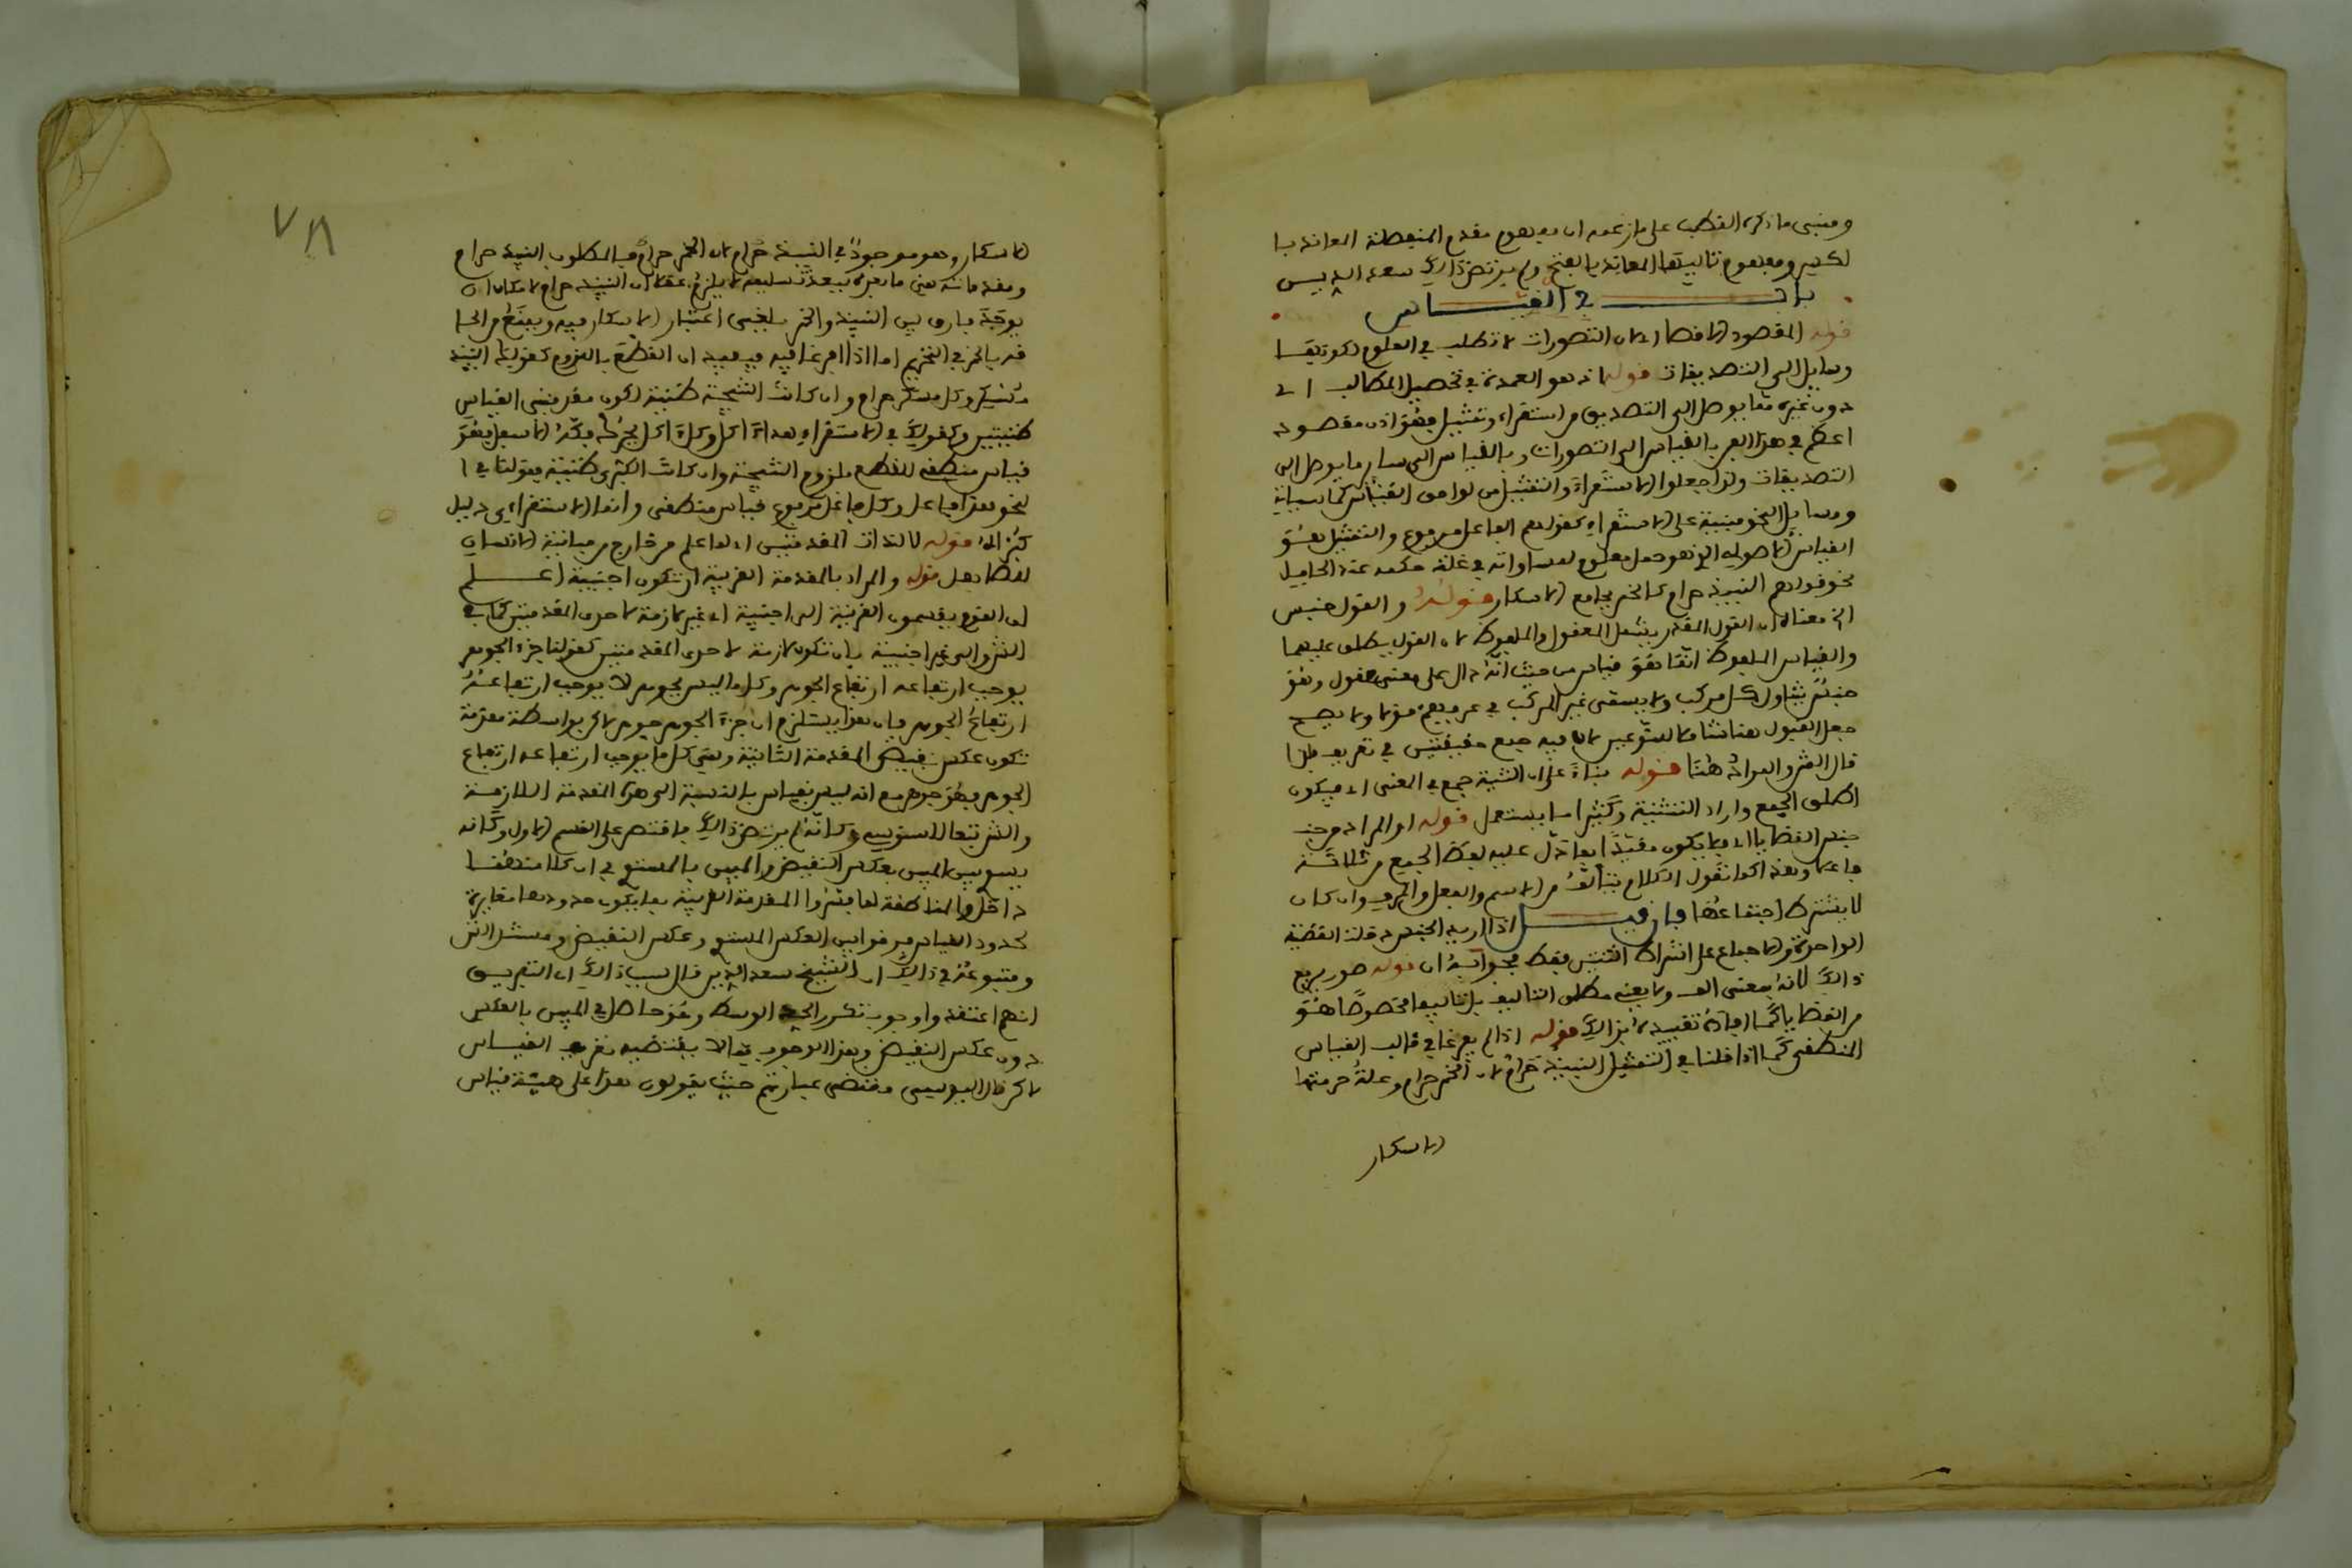 ومبنى ما ذكره القطب على ما زعمه ان مفهوم مقدم المنفصلة المعاند با
لكسر ومفهوم تاليها المعاند بالفتح ولم يرتض ذالك سعد الدين
باب في القياس
قوله المقصود الاقصا اى لان التصورات لا تطلب في العلوم لكونها
وسايل الى التصديقات قوله اذ هو العمدة في تحصيل المطالب اى
دون غيره مما يوصل الى التصديق من استقراء وتمثيل فهو اذن مقصود
اعظم في هذا الفن بالقياس الى التصورات وبالقياس الى ساير ما يوصل الى
التصديقات ولذا جعلوا الاستقراء والتمثيل من لواحق القياس كما سياتي
ومسايل النحو مبنية على الاستقراء كقولهم الفاعل مرفوع والتمثيل هو
القياس الاصولي الذي هو حمل معلوم لمساواته في علة حكمه عند الحامل
نحو قولهم النبيذ حرام كالخمر بجامع الاسكار قوله والقول جنس
الخ معناه ان القول المقدر يشمل المعقول والملفوظ لان القول يطلق عليهما
والقياس الملفوظ انما هو قياس من حيث انه دال على معنى معقول وهو
جنس يتناول كل مركب ولا يسمى غير المركب في عرفهم قولا ولا يصح
جعل القول هنا شاملا للنوعين لان فيه جمع حقيقتين في تعريف فلذا
قال الش والمراد هنا قوله بناء على ان التثنية جمع في المعنى اى فيكون
اطلق الجمع واراد التثنية وكثيرا ما يستعمل قوله او المراد من
جنس القضايا اى فلا يكون مقيدا بما دل عليه لفظ الجمع من ثلاثة
فاعلا وهذا كما تقول الكلام يتألف من الاسم والفعل والحرف وان كان
لا يشترط اجتماعها فان قيل اذا اريد الجنس دخلت القضية
الواحدة والاجماع على اشتراط اثنتين فقط فجوابه ان قوله صور يدفع
ذالك لانه بمعنى الف ولا يعني مطلق التاليف بل تاليفا مخصوصا هو
من القضايا كما افاده تقييده بذالك قوله اذا لم يفرغا في قالب القياس
المنطقي كما اذا قلنا في التمثيل النبيذ حرام لان الخمر حرام وعلة حرمتها
الاسكار
٧٨
الاسكار وهو موجود في النبيذ حرام لان الخمر حرام فالمطلوب النبيذ حرام
ومقدماته هي ما بعده فبعد تسليمه لا يلزم عقلا ان النبيذ حرام لامكان ان
يوجد فارق بين النبيذ والخمر يلغى اعتبار الاسكار فيه ويمنع من الحا
قه بالخمر في التحريم اما اذا افرغا فيه فيفيد ان القطع باللزوم كقولك النبيذ
مسكر وكل مسكر حرام وان كانت النتيجة ظنية لكون مقدمتي القياس
ظنيتين وكقولك في الاستقراء هذا اكل وكل اكل يحرك فكه الاسفل فهو
قياس منطقي للقطع بلزوم النتيجة وان كانت الكبرى ظنية فقولنا في ا
لنحو هذا فاعل وكل فاعل مرفوع قياس منطقي وانما الاستقراء دليل
كبراه قوله لا لذات المقدمتين اى لما علم من خارج من مباينة الانسان
للفظ بعل قوله والمراد بالمقدمة الغريبة ان تكون اجنبية اعلم
ان القوم يقسمون الغريبة الى اجنبية اى غير لازمة لاحدى المقدمتين كما في
الش والى غير اجنبية بان تكون لازمة لاحدى المقدمتين كقولنا جزء الجوهر
يوجب ارتفاعه ارتفاع الجوهر وكل ما ليس بجوهر لا يوجب ارتفاعه
ارتفاع الجوهر فان هذا يستلزم ان جزء الجوهر جوهر لاكن بواسطة مقدمة
تكون عكس نقيض المقدمة الثانية وهي كل ما يوجب ارتفاعه ارتفاع
الجوهر فهو جوهر مع انه ليس بقياس بالنسبة الى هذه المقدمة اللازمة
والش تبعا للسنوسي وكانه لم يرتض ذالك فاقتصر على القسم الاول وكانه
يسوي بين المبين بعكس النقيض والمبين بالمستوي في ان كلا منهما
داخل والمناطقة لما فسروا المقدمة الغريبة بما يكون حدودها مغايرة
لحدود القياس فرقوا بين العكس المستوي وعكس النقيض ومستند الش
ومتبوعه في ذالك ان الشيخ سعد الدين قال سبب ذالك اى التفريق
انهم اعتقدوا وجوب تكرر الحد الوسط وهو حاصل في المبين بالعكس
دون عكس النقيض وهذا الوجوب مما لا يقتضيه تعريف القياس
لاكن قال اليوسي مقتضى عبارتهم حيث يقولون هذا على هيئة قياس